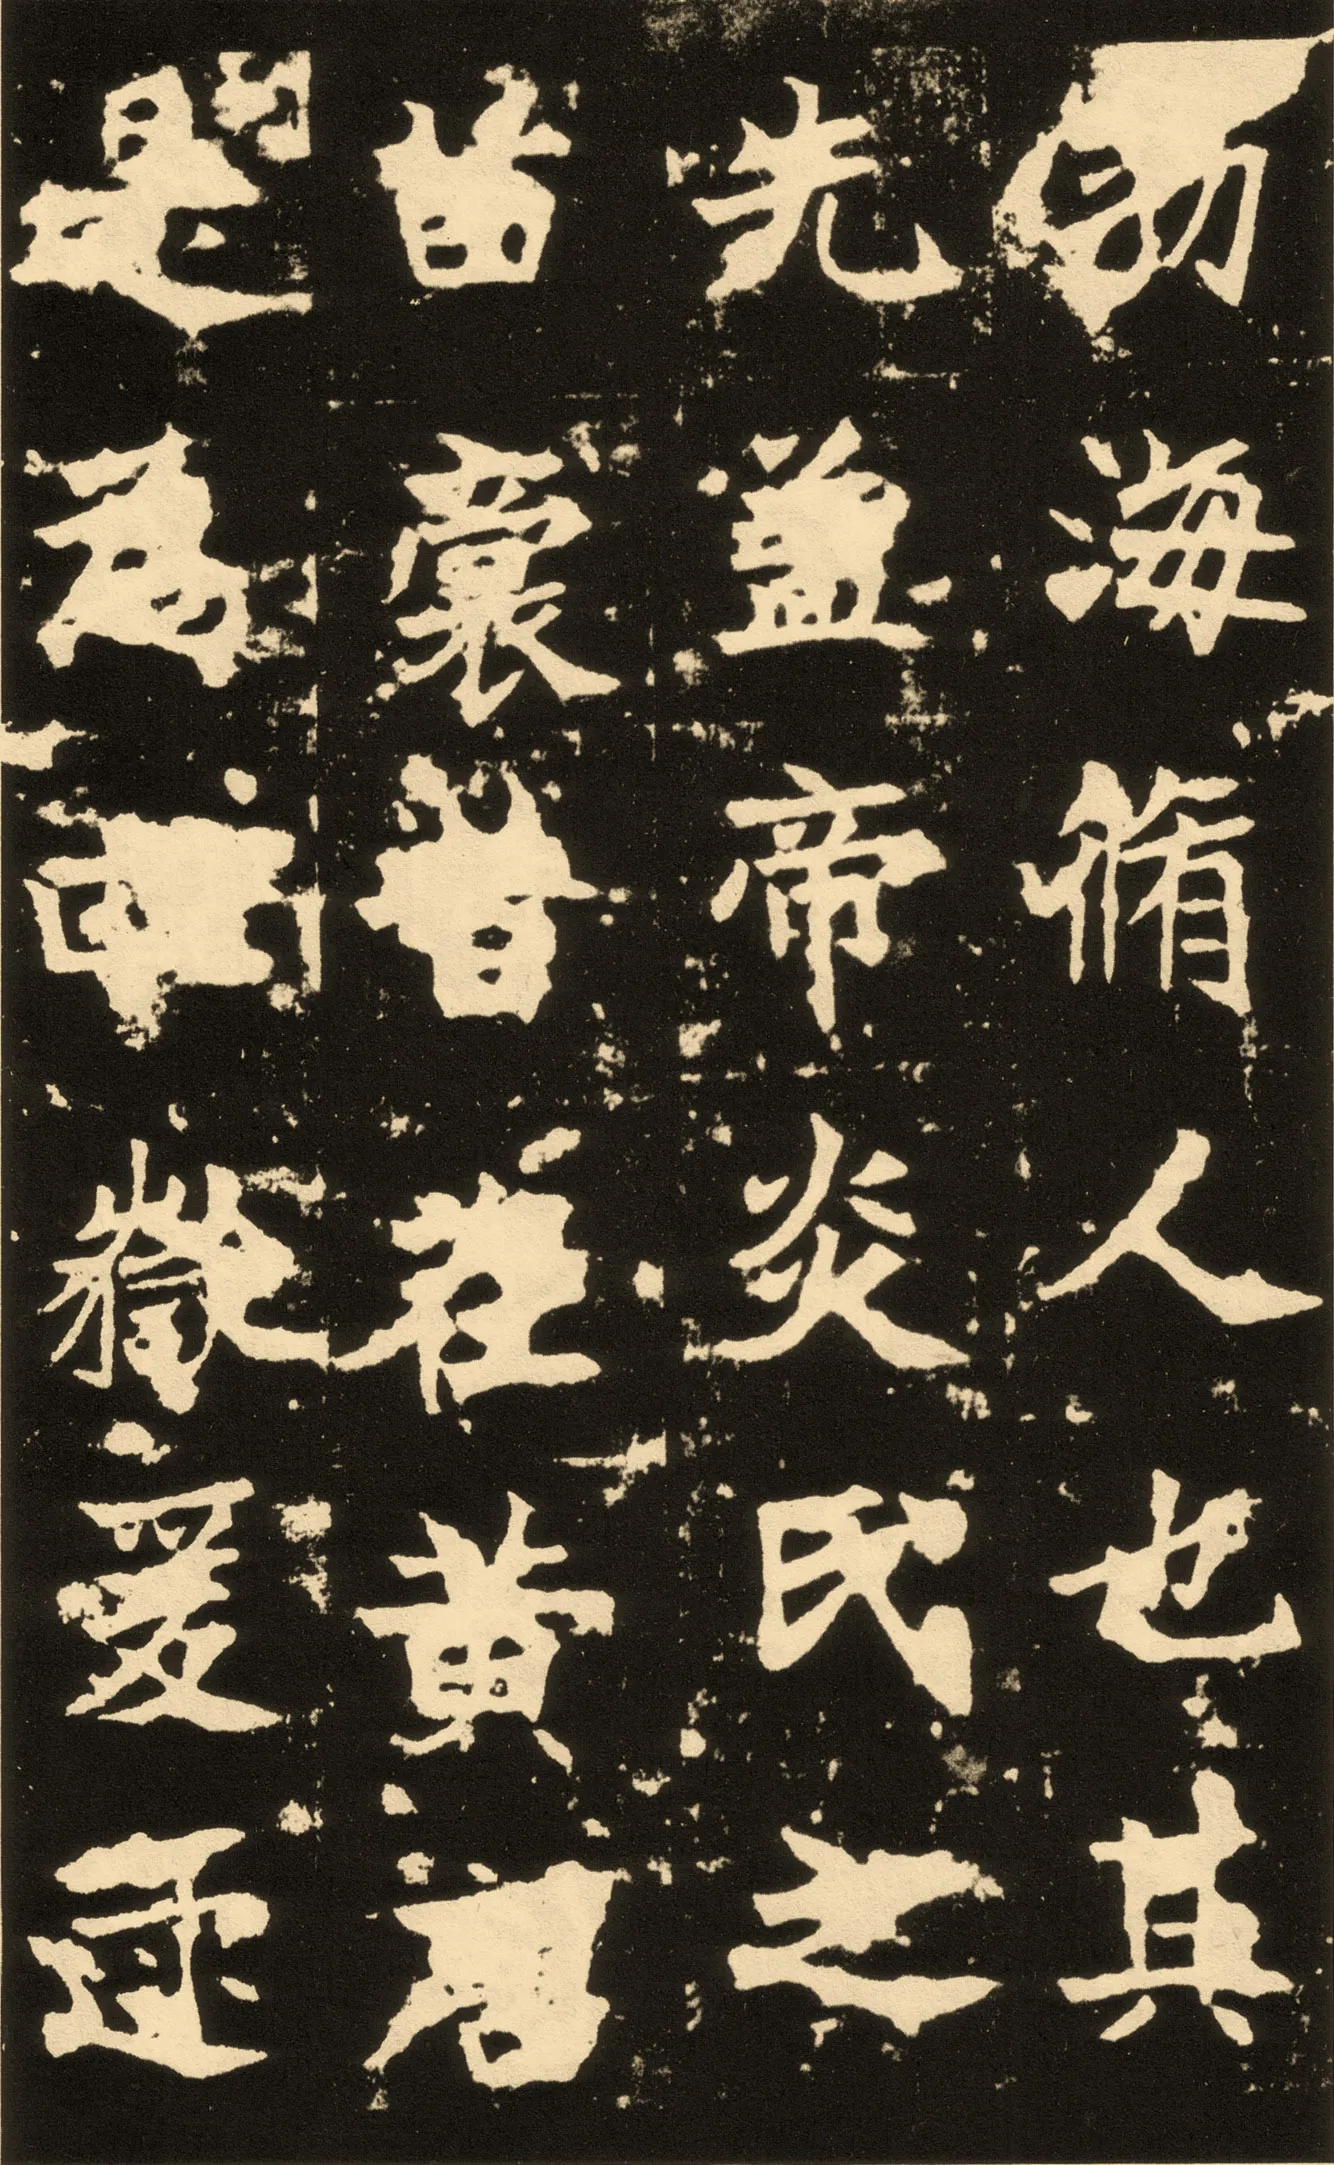 勃海脩人也其
先盖帝炎氏之
苗裔昔在黄唐
是為四嶽爰逮